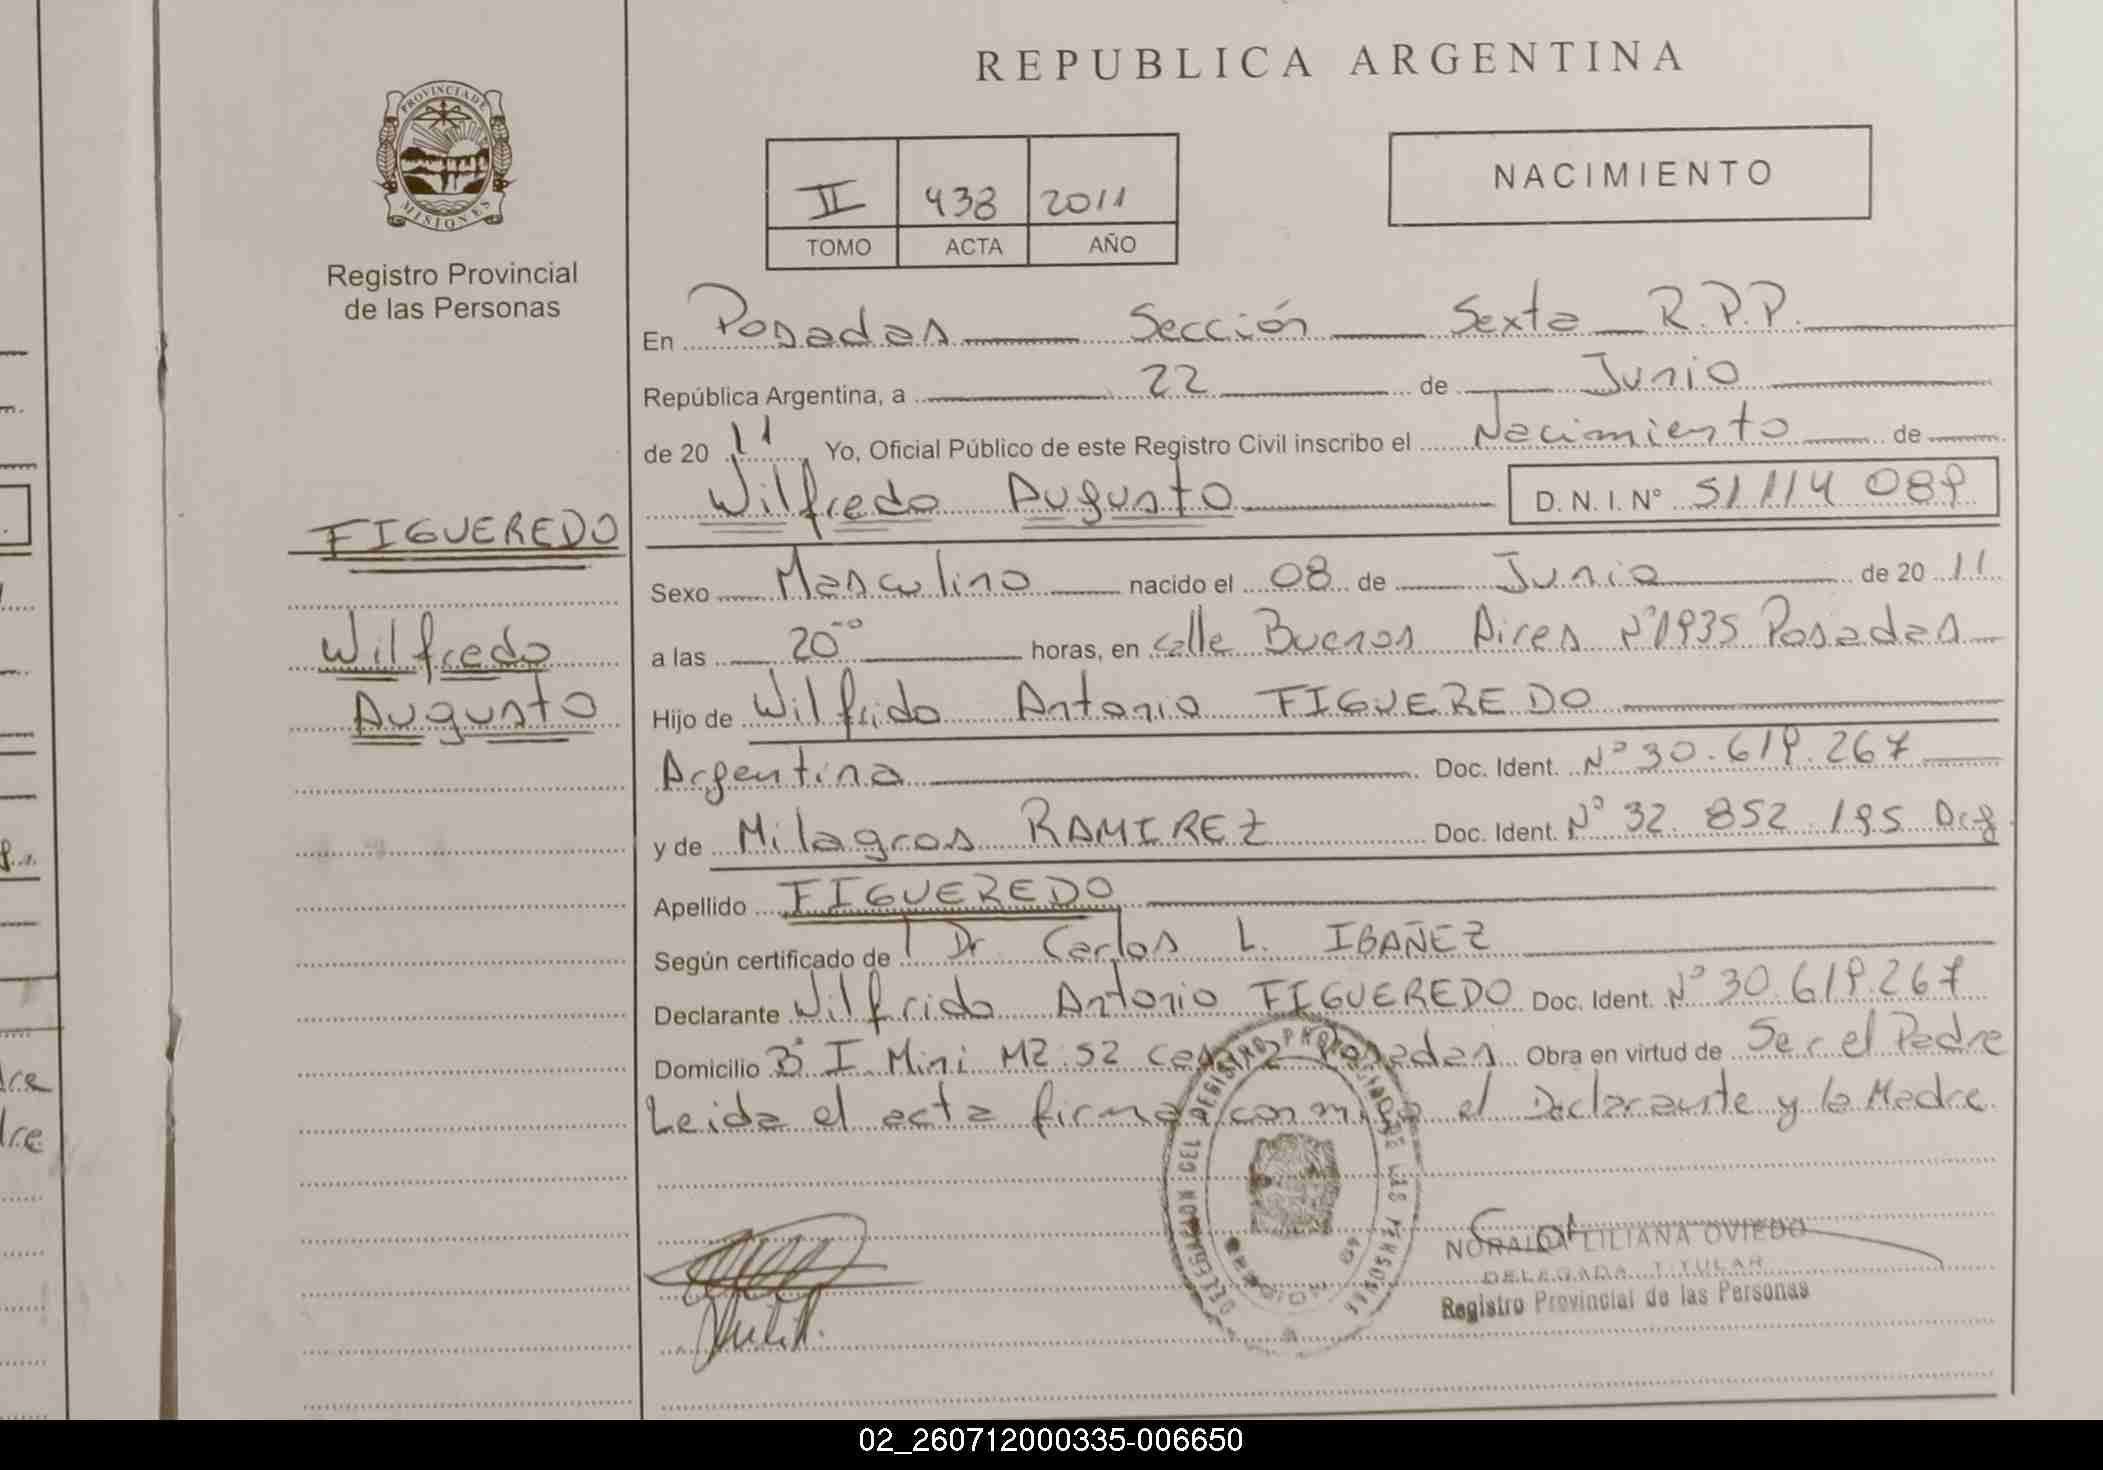 REPUBLICA ARGENTINA
PROVINCIA DE
MISIONES
Registro Provincial
de las Personas
II 438 2011
TOMO ACTA AÑO
NACIMIENTO
En Posadas Sección Sexta R.P.P.
República Argentina, a 22 de Junio
de 20 11 Yo, Oficial Público de este Registro Civil inscribo el Nacimiento de
Wilfredo Augusto D. N. I. Nº 51114 089
FIGUEREDO
Wilfredo
Augusto
Sexo Masculino nacido el 08 de Junio de 20 11
a las 20 horas, en calle Buenos Aires Nº1935 Posadas
Hijo de Wilfrido Antonio FIGUEREDO
Argentino Doc. Ident. Nº 30.619.267
y de Milagros RAMIREZ Doc. Ident. Nº 32.852.195 Arg
Apellido FIGUEREDO
Según certificado de Dr Carlos L. IBAÑEZ
Declarante Wilfrido Antonio FIGUEREDO Doc. Ident. Nº 30.619.267
Domicilio Bº I. Mini MZ.52 casa Posadas Obra en virtud de Ser el Padre
Leida el acta firma conmigo el Declarante y la Madre.
DELEGACION DEL REGISTRO PROVINCIAL DE LAS PERSONAS
MISIONES
LILIANA OVIEDO
DELEGADA TITULAR
Registro Provincial de las Personas
dre
dre
02_260712000335-006650